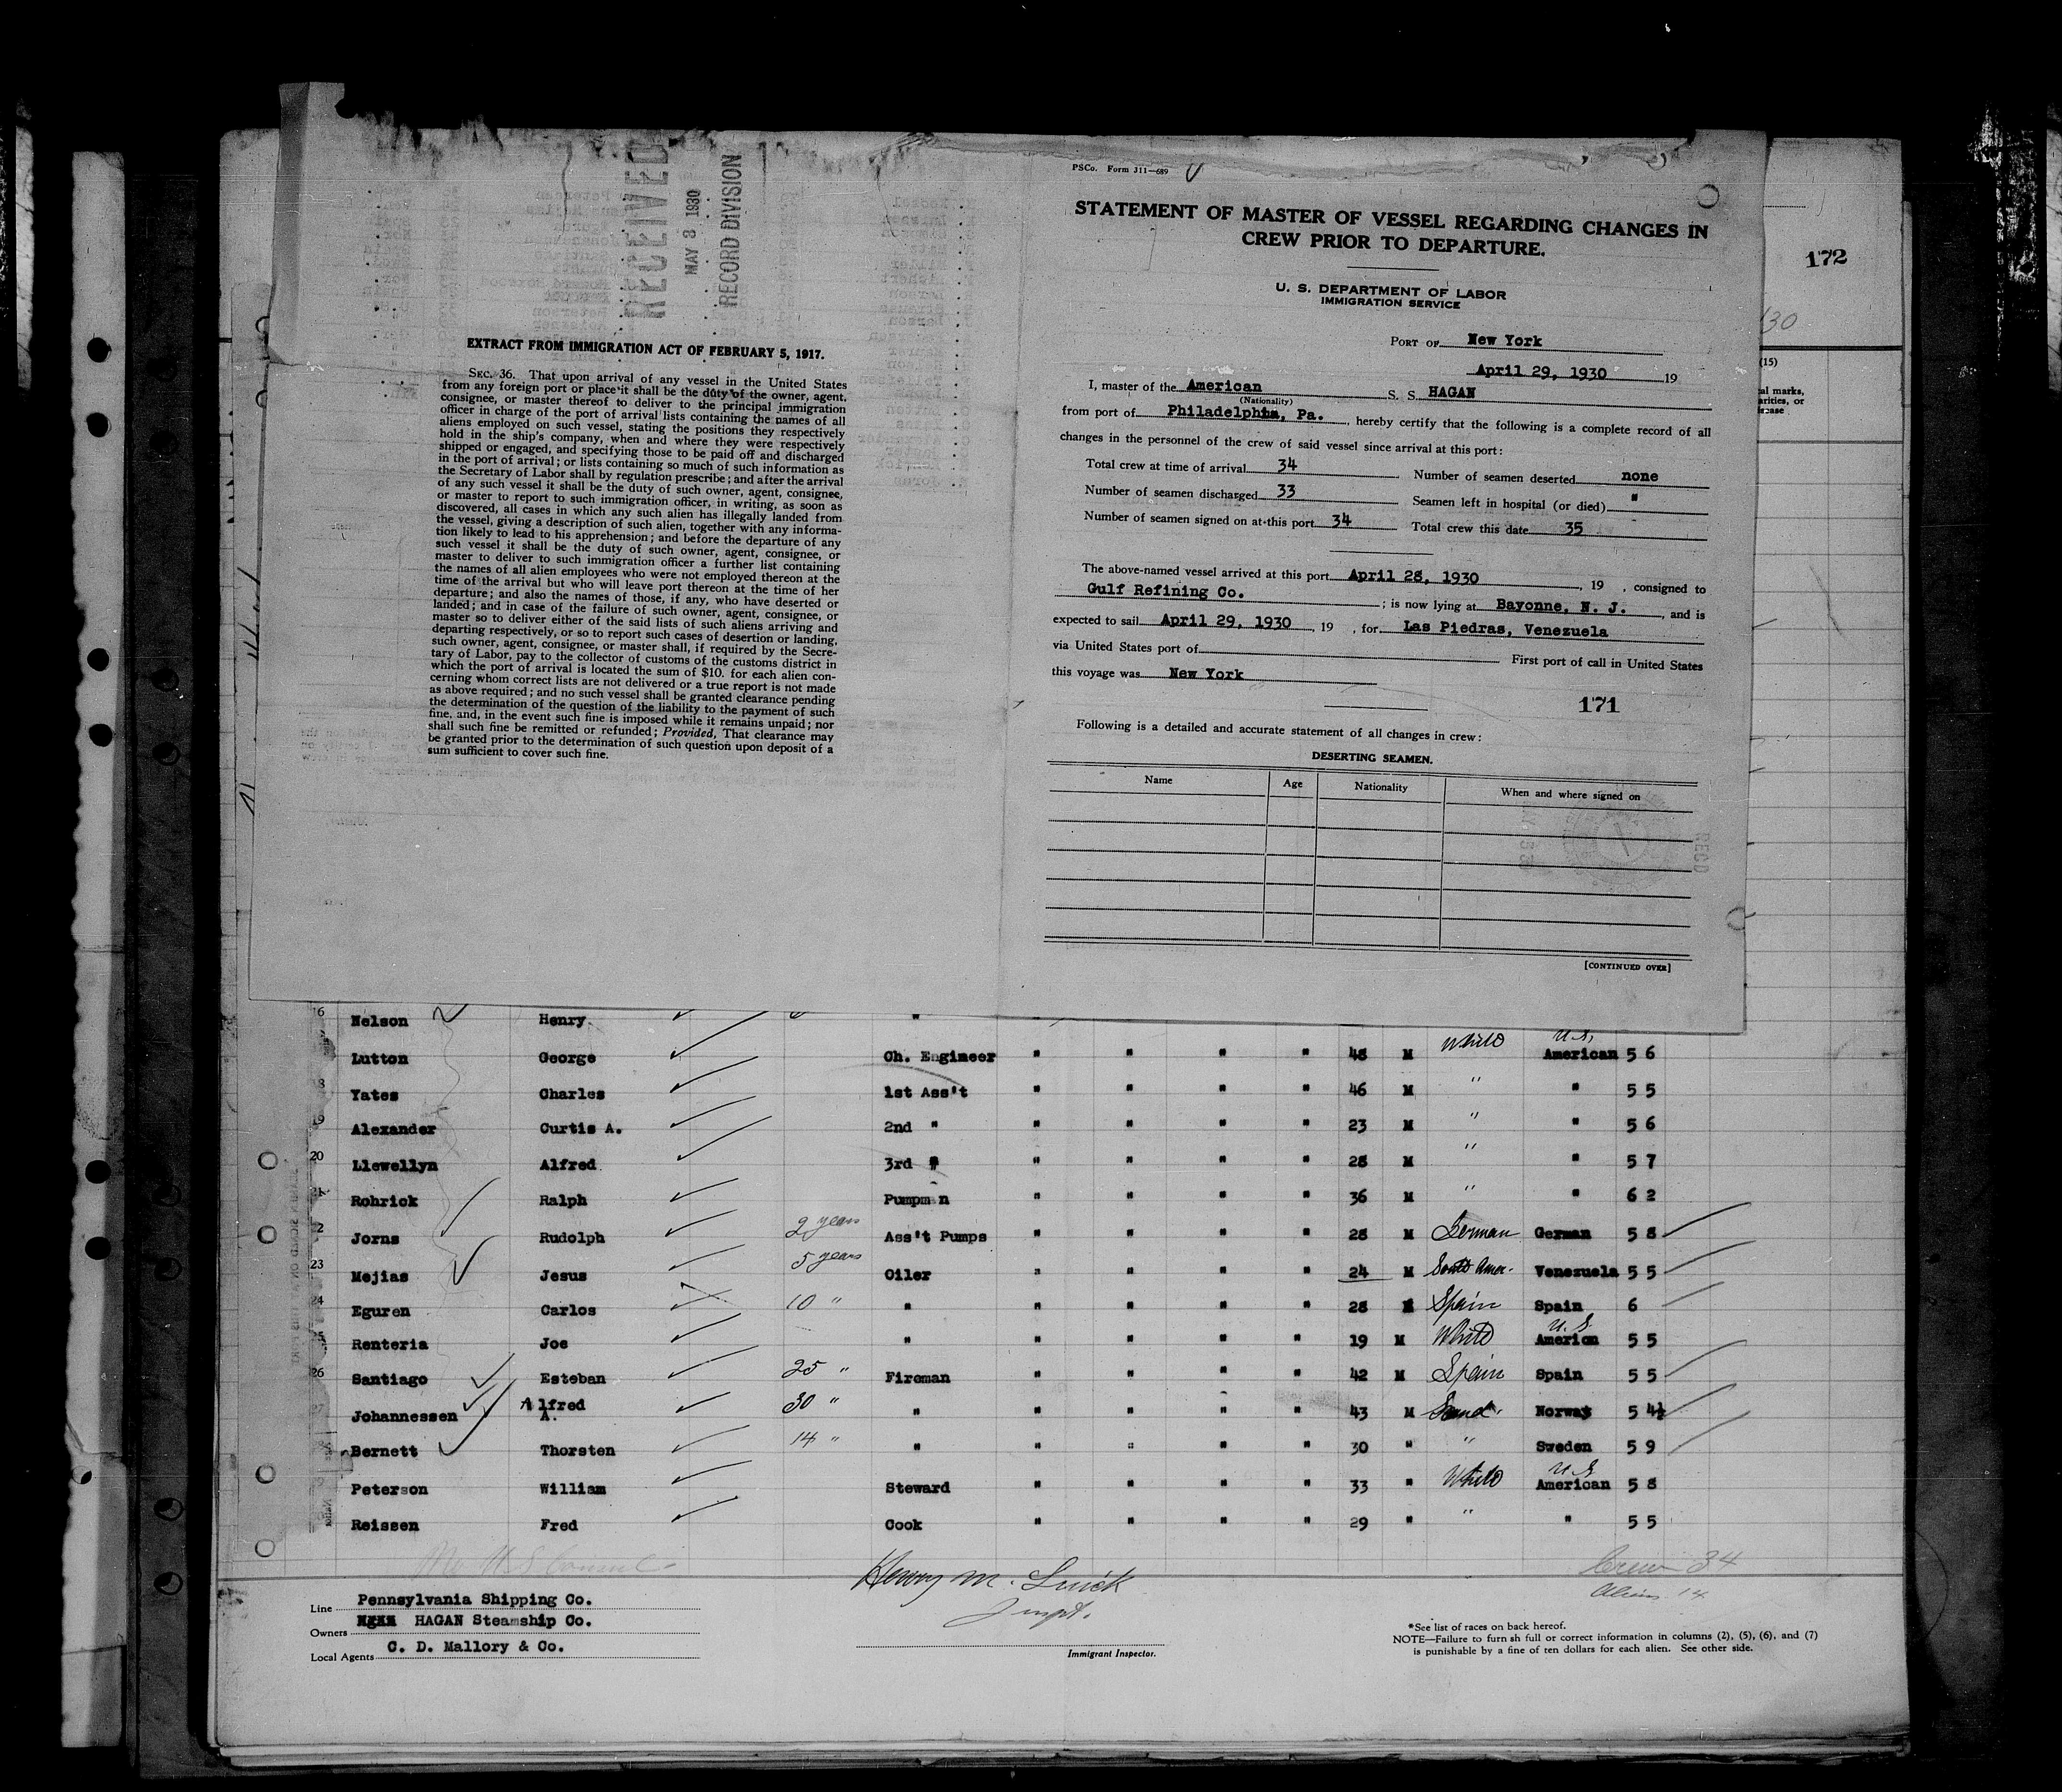 RECEIVED
MAY 8 1930
RECORD DIVISION
EXTRACT FROM IMMIGRATION ACT OF FEBRUARY 5, 1917.
SEC. 36. That upon arrival of any vessel in the United States
from any foreign port or place it shall be the duty of the owner, agent,
consignee, or master thereof to deliver to the principal immigration
officer in charge of the port of arrival lists containing the names of all
aliens employed on such vessel, stating the positions they respectively
hold in the ship's company, when and where they were respectively
shipped or engaged, and specifying those to be paid off and discharged
in the port of arrival; or lists containing so much of such information as
the Secretary of Labor shall by regulation prescribe; and after the arrival
of any such vessel it shall be the duty of such owner, agent, consignee,
or master to report to such immigration officer, in writing, as soon as
discovered, all cases in which any such alien has illegally landed from
the vessel, giving a description of such alien, together with any informa-
tion likely to lead to his apprehension; and before the departure of any
such vessel it shall be the duty of such owner, agent, consignee, or
master to deliver to such immigration officer a further list containing
the names of all alien employees who were not employed thereon at the
time of the arrival but who will leave port thereon at the time of her
departure; and also the names of those, if any, who have deserted or
landed; and in case of the failure of such owner, agent, consignee, or
master so to deliver either of the said lists of such aliens arriving and
departing respectively, or so to report such cases of desertion or landing,
such owner, agent, consignee, or master shall, if required by the Secre-
tary of Labor, pay to the collector of customs of the customs district in
which the port of arrival is located the sum of $10. for each alien con-
cerning whom correct lists are not delivered or a true report is not made
as above required; and no such vessel shall be granted clearance pending
the determination of the question of the liability to the payment of such
fine, and, in the event such fine is imposed while it remains unpaid; nor
shall such fine be remitted or refunded; Provided, That clearance may
be granted prior to the determination of such question upon deposit of a
sum sufficient to cover such fine.
PSCo. Form 311—689
STATEMENT OF MASTER OF VESSEL REGARDING CHANGES IN
CREW PRIOR TO DEPARTURE.
U. S. DEPARTMENT OF LABOR
IMMIGRATION SERVICE
PORT OF New York
April 29, 1930 19
I, master of the American S. S. HAGAN
(Nationality)
from port of Philadelphia, Pa., hereby certify that the following is a complete record of all
changes in the personnel of the crew of said vessel since arrival at this port:
Total crew at time of arrival 34 Number of seamen deserted none
Number of seamen discharged 33 Seamen left in hospital (or died) "
Number of seamen signed on at this port 34 Total crew this date 35
The above-named vessel arrived at this port April 28, 1930, 19 , consigned to
Gulf Refining Co. ; is now lying at Bayonne, N. J., and is
expected to sail April 29, 1930, 19 , for Las Piedras, Venezuela
via United States port of First port of call in United States
this voyage was New York
171
Following is a detailed and accurate statement of all changes in crew:
DESERTING SEAMEN.
Name Age Nationality When and where signed on
[CONTINUED OVER]
172
30
(15)
al marks,
arities, or
sease
16 Nelson Henry "
Lutton George Ch. Engineer " " " " 48 M White U.S. American 5 6
18 Yates Charles 1st Ass't " " " " 46 M " " 5 5
19 Alexander Curtis A. 2nd " " " " " 23 M " " 5 6
20 Llewellyn Alfred 3rd " " " " " 28 M " " 5 7
21 Rohrick Ralph Pumpman " " " " 36 M " " 6 2
22 Jorns Rudolph 2 years Ass't Pumps " " " " 28 M German German 5 8
23 Mejias Jesus 5 years Oiler " " " " 24 M South Amer. Venezuela 5 5
24 Eguren Carlos 10 " " " " " " 28 M Spain Spain 6
25 Renteria Joe " " " " " 19 M White U.S. American 5 5
26 Santiago Esteban 25 " Fireman " " " " 42 M Spain Spain 5 5
27 Johannessen Alfred A. 30 " " " " " " 43 M Scand. Norway 5 4½
Bernett Thorsten 14 " " " " " " 30 " " Sweden 5 9
Peterson William Steward " " " " 33 " White U.S. American 5 8
Reissen Fred Cook " " " " 29 " " " 5 5
No U S Consul
Crew 34
Aliens 14
Line Pennsylvania Shipping Co.
Owners HAGAN Steamship Co.
Local Agents C. D. Mallory & Co.
Immigrant Inspector.
*See list of races on back hereof.
NOTE—Failure to furnish full or correct information in columns (2), (5), (6), and (7)
is punishable by a fine of ten dollars for each alien. See other side.